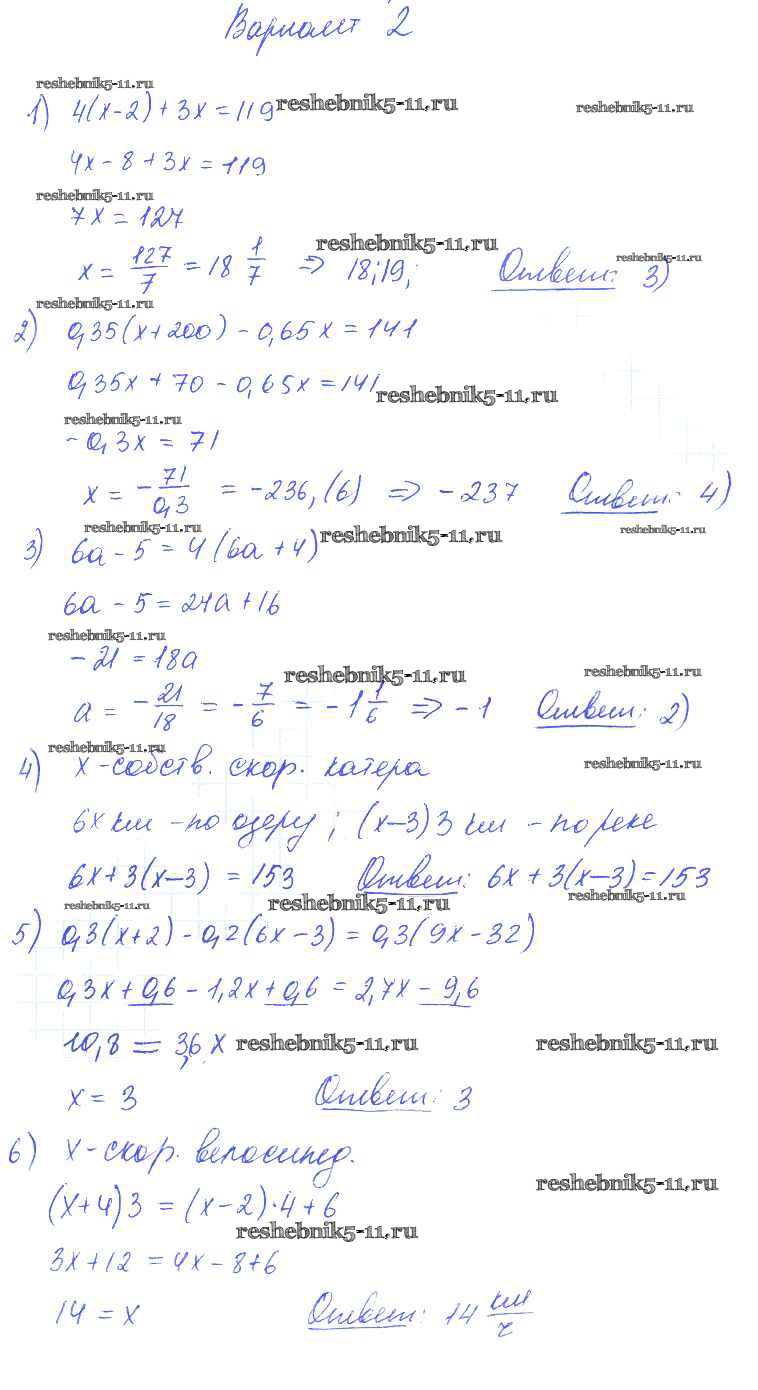 Вариант 2
reshebnik5-11.ru
1) 4(x-2)+3x=119 reshebnik5-11.ru reshebnik5-11.ru
4x-8+3x=119
reshebnik5-11.ru
7x=127
x=127/7=18 1/7 => 18;19; reshebnik5-11.ru Ответ: 3) reshebnik5-11.ru
reshebnik5-11.ru
2) 0,35(x+200)-0,65x=141
0,35x+70-0,65x=141 reshebnik5-11.ru
reshebnik5-11.ru
-0,3x=71
x=-71/0,3=-236,(6) => -237 Ответ: 4)
reshebnik5-11.ru reshebnik5-11.ru reshebnik5-11.ru
3) 6a-5=4(6a+4)
6a-5=24a+16
reshebnik5-11.ru
-21=18a
reshebnik5-11.ru reshebnik5-11.ru
a=-21/18=-7/6=-1 1/6 => -1 Ответ: 2)
reshebnik5-11.ru reshebnik5-11.ru
4) x-собств. скор. катера
6x км -по озеру; (x-3)3 км -по реке
6x+3(x-3)=153 Ответ: 6x+3(x-3)=153
reshebnik5-11.ru reshebnik5-11.ru reshebnik5-11.ru
5) 0,3(x+2)-0,2(6x-3)=0,3(9x-32)
0,3x+0,6-1,2x+0,6=2,7x-9,6
10,8=3,6x reshebnik5-11.ru reshebnik5-11.ru
x=3 Ответ: 3
6) x-скор. велосипед.
reshebnik5-11.ru
(x+4)3=(x-2)·4+6
reshebnik5-11.ru
3x+12=4x-8+6
14=x Ответ: 14 км/ч